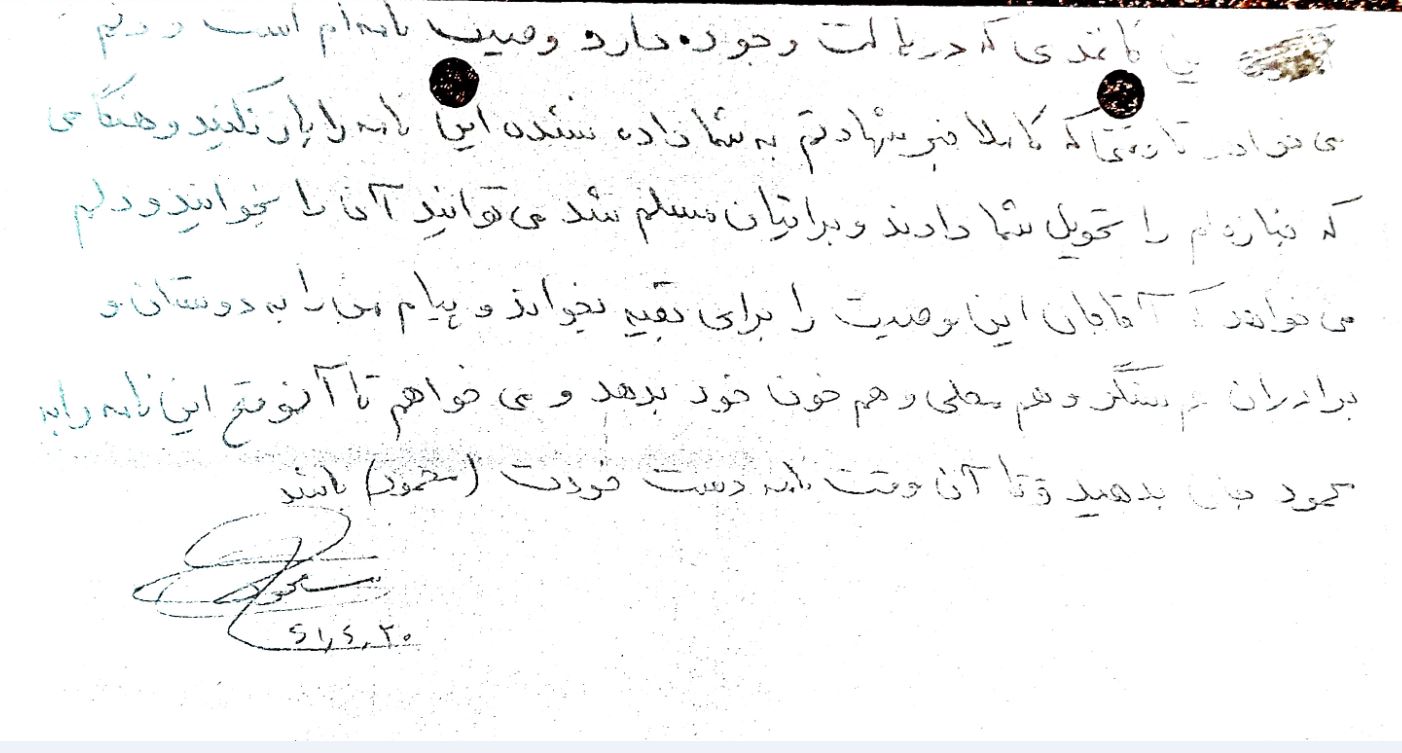 کاغذی که در پاکت وجود دارد وصیت نامه‌ام است و دلم
می خواهد تا وقتی که کاملا خبر شهادتم به شما داده نشده این نامه را باز نکنید و هنگامی
که جنازه‌ام را تحویل شما دادند و برایتان مسلم شد می توانید آن را بخوانید و دلم
می خواهد که آقاجان این وصیت را برای بقیه بخواند و پیام من را به دوستان و
برادران هم سنگر و هم محلی و هم خون خود بدهد و می خواهم تا آنموقع این نامه را به
محمود بدهید و تا آن وقت نامه دست خودت (محمود) باشد
۶۱,۴,۲۰